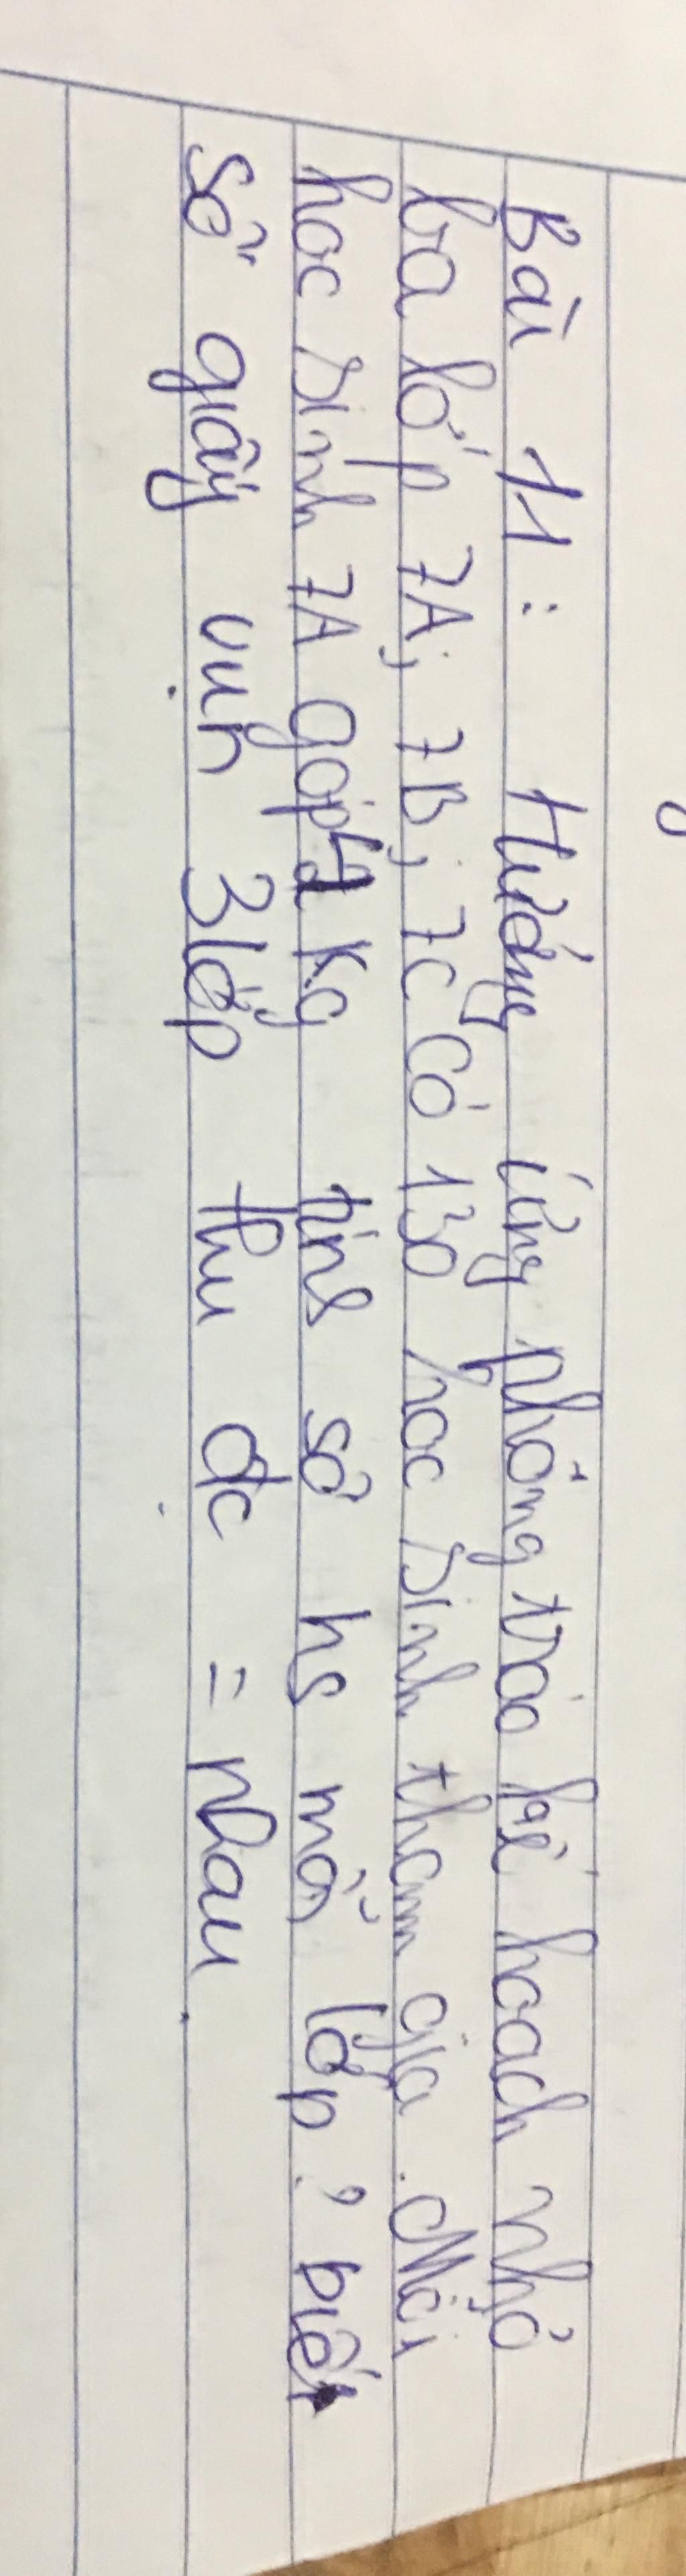 Bài 11: Hưởng ứng phong trào kế hoach nhỏ
ba lớp 7A; 7B; 7C có 130 hoc sinh tham gia. Mỗi
hoc sinh 7A góp kg tính số hs mỗi lớp? biết
số giấy vụn 3 lớp thu đc = nhau.